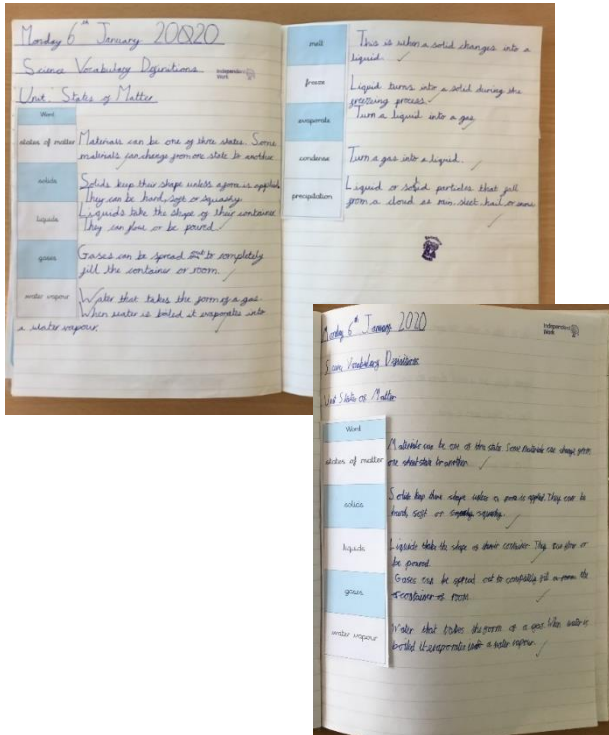 Monday 6th January 2020
Science Vocabulary Definitions
Independent Work
Unit: States of Matter
Word
states of matter
Materials can be one of three states. Some
materials can change from one state to another.
solids
Solids keep their shape unless a force is applied
They can be hard, soft or squashy.
liquids
Liquids take the shape of their container
They can flow or be poured
gases
Gases can be spread out to completely
fill the container or room.
water vapour
Water that takes the form of a gas.
When water is boiled it evaporates into
a water vapour.
melt
This is when a solid changes into a
liquid.
freeze
Liquid turns into a solid during the
freezing process.
evaporate
Turn a liquid into a gas
condense
Turn a gas into a liquid.
precipitation
Liquid or solid particles that fall
from a cloud as rain, sleet, hail or snow
Monday 6th January 2020
Independent Work
Science Vocabulary Definitions
Unit States of Matter
Word
states of matter
Materials can be one of three state Some materials can change from
one state to another.
solids
Solids keep there shape unless a force is applied They can be
hard, soft or squashy.
liquids
Liquids take the shape of container They can flow or
be poured
gases
Gases can be spread out to fill the
container or room.
water vapour
Water that takes the form of a gas When water is
boiled it evaporates into a water vapour.